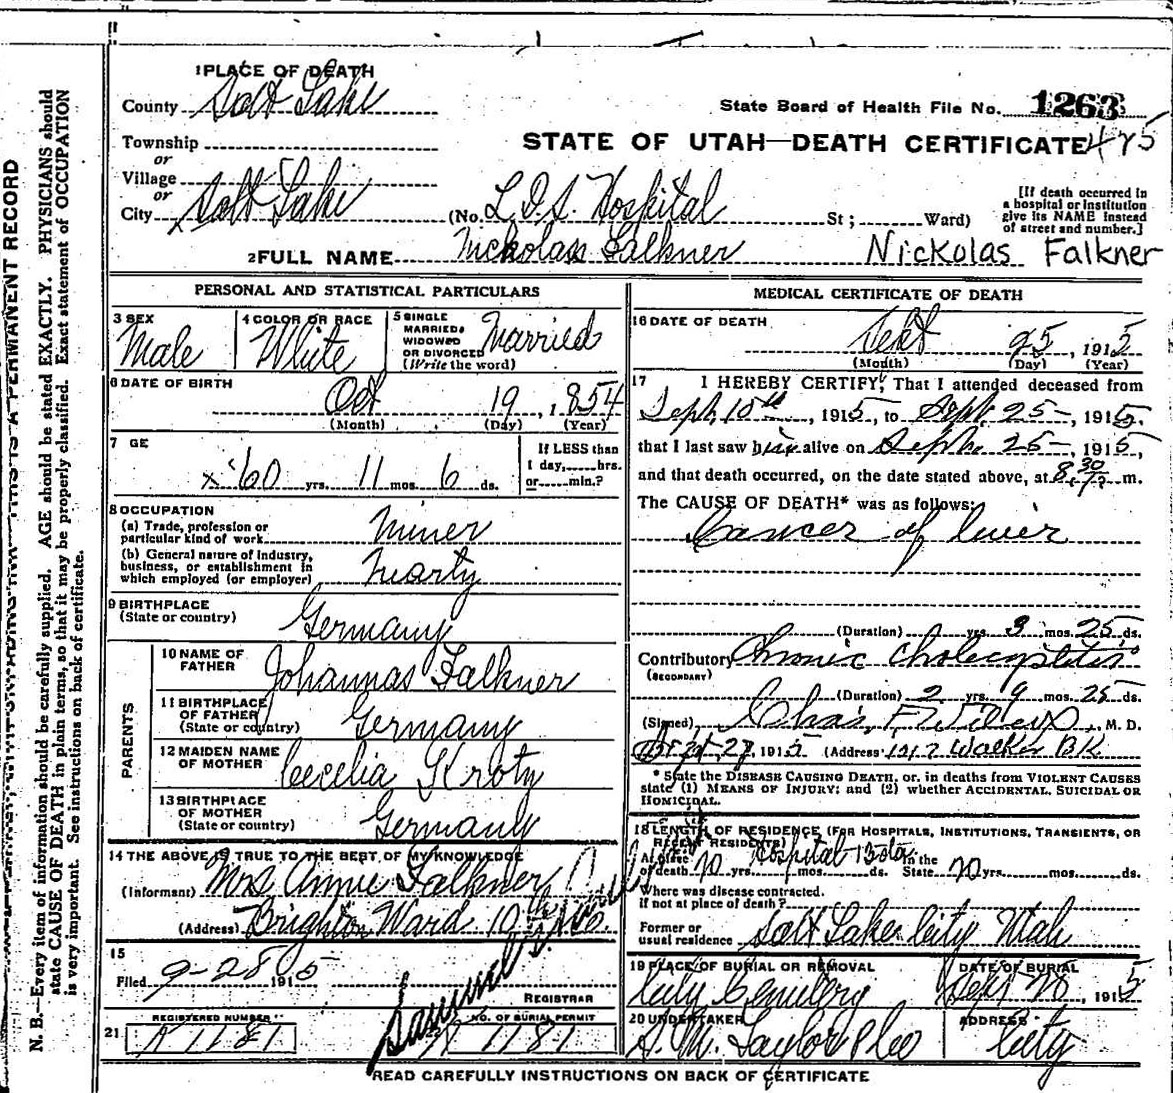 1 PLACE OF DEATH
County Salt Lake
State Board of Health File No. 1263
Township
STATE OF UTAH—DEATH CERTIFICATE 475
or
Village
or
City Salt Lake (No. L.D.S. Hospital St; Ward)
[If death occurred in
a hospital or institution
give its NAME instead
of street and number.]
2 FULL NAME Nickolass Falkner Nickolas Falkner
PERSONAL AND STATISTICAL PARTICULARS
3 SEX
Male
4 COLOR OR RACE
White
5 SINGLE
MARRIED
WIDOWED
OR DIVORCED
(Write the word)
Married
6 DATE OF BIRTH
Oct 19, 1854
(Month) (Day) (Year)
7 GE
60 yrs. 11 mos. 6 ds.
If LESS than
1 day, hrs.
or min.?
8 OCCUPATION
(a) Trade, profession or
particular kind of work Miner
(b) General nature of industry,
business, or establishment in
which employed (or employer)
9 BIRTHPLACE
(State or country) Germany
PARENTS
10 NAME OF
FATHER Johannas Falkner
11 BIRTHPLACE
OF FATHER
(State or country) Germany
12 MAIDEN NAME
OF MOTHER Cecelia Kroty
13 BIRTHPLACE
OF MOTHER
(State or country) Germany
14 THE ABOVE IS TRUE TO THE BEST OF MY KNOWLEDGE
(Informant) Mrs Annie Falkner
(Address) Brighton Ward 10th
15
Filed 9-28 1915
REGISTRAR
REGISTERED NUMBER
21 A 1181
NO. OF BURIAL PERMIT
A 1181
MEDICAL CERTIFICATE OF DEATH
16 DATE OF DEATH
Sept 25, 1915
(Month) (Day) (Year)
17 I HEREBY CERTIFY, That I attended deceased from
Sept, 10th, 1915, to Sept. 25-, 1915,
that I last saw him alive on Sept. 25-, 1915,
and that death occurred, on the date stated above, at 8:30 m.
The CAUSE OF DEATH* was as follows:
Cancer of liver
(Duration) yrs. 3 mos. 25 ds.
Contributory Chronic Cholecystitis
(SECONDARY)
(Duration) 2 yrs. 9 mos. 25 ds.
(Signed) Chas. F. Wilcox, M. D.
Sept-27, 1915 (Address 1217 Walker BK
* State the DISEASE CAUSING DEATH, or, in deaths from VIOLENT CAUSES
state (1) MEANS OF INJURY; and (2) whether ACCIDENTAL, SUICIDAL OR
HOMICIDAL.
18 LENGTH OF RESIDENCE (FOR HOSPITALS, INSTITUTIONS, TRANSIENTS, OR
RECENT RESIDENTS)
At place
of death yrs. mos. ds. Hospital In the State yrs. mos. ds.
Where was disease contracted,
if not at place of death?
Former or
usual residence Salt Lake City Utah
19 PLACE OF BURIAL OR REMOVAL
City Cemetery
DATE OF BURIAL
Sept 28, 1915
20 UNDERTAKER
S. M. Taylor & Co
ADDRESS
City
READ CAREFULLY INSTRUCTIONS ON BACK OF CERTIFICATE
N. B.—Every item of information should be carefully supplied. AGE should be stated EXACTLY. PHYSICIANS should
state CAUSE OF DEATH in plain terms, so that it may be properly classified. Exact statement of OCCUPATION
is very important. See instructions on back of certificate.
A PERMANENT RECORD